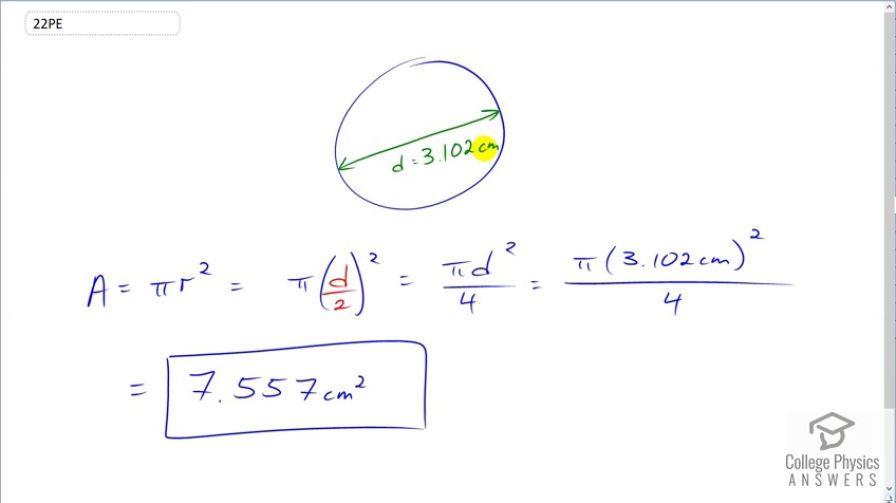 22PE
d = 3.102 cm
A = πr² = π(d/2)² = πd²/4 = π(3.102 cm)²/4
= 7.557 cm²
College Physics
ANSWERS